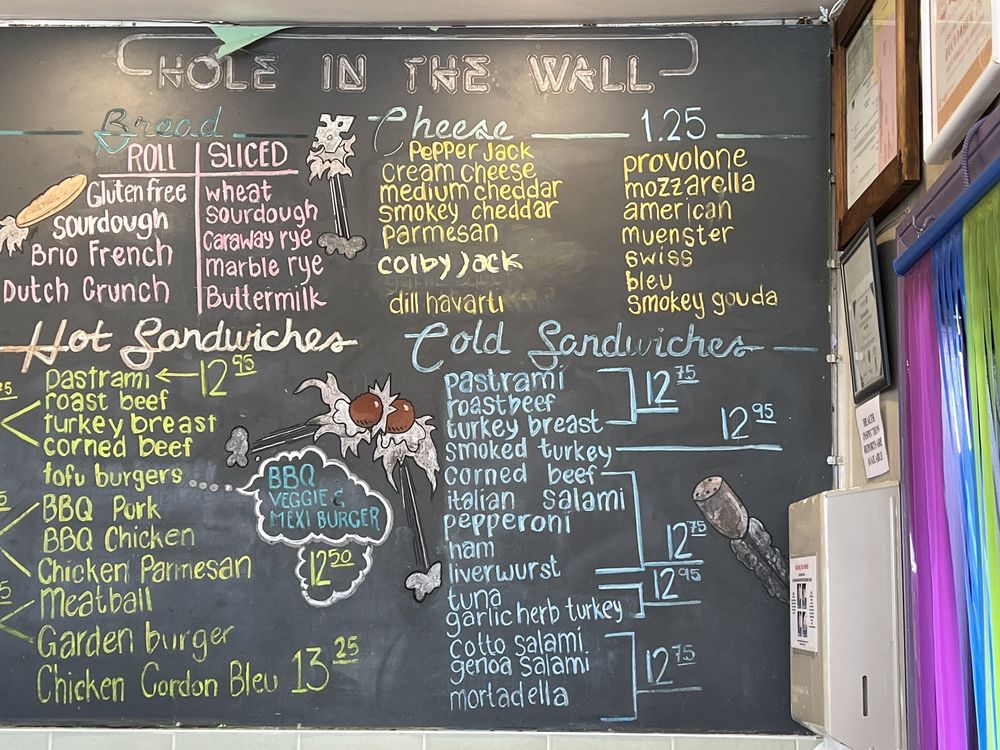 HOLE IN THE WALL
Bread
ROLL SLICED
Gluten free
sourdough
Brio French
Dutch Crunch
wheat
sourdough
Caraway rye
marble rye
Buttermilk
Cheese 1.25
Pepper Jack
cream cheese
medium cheddar
smokey cheddar
Parmesan
colby Jack
dill havarti
provolone
mozzarella
american
muenster
swiss
bleu
smokey gouda
Hot Sandwiches
pastrami 12.95
roast beef
turkey breast
corned beef
tofu burgers
BBQ
VEGGIE &
MEXI BURGER
12.50
BBQ Pork
BBQ Chicken
Chicken Parmesan
Meatball
Garden burger
Chicken Cordon Bleu 13.25
Cold Sandwiches
pastrami
roastbeef
turkey breast
12.75
smoked turkey 12.95
corned beef
italian salami
pepperoni
ham
liverwurst
12.75
tuna
garlic herb turkey
12.95
cotto salami
genoa salami
mortadella
12.75
HEALTH
INSPECTION
REPORTS ARE
AVAILABLE